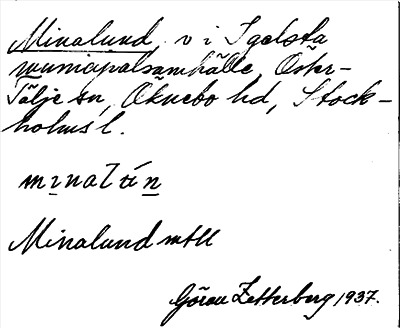 Minalund, v i Igelsta
municipalsamhälle, Öster-
Tälje sn, Öknebo hd, Stock-
holms l.
Minalund
Göran Zetterberg 1937.